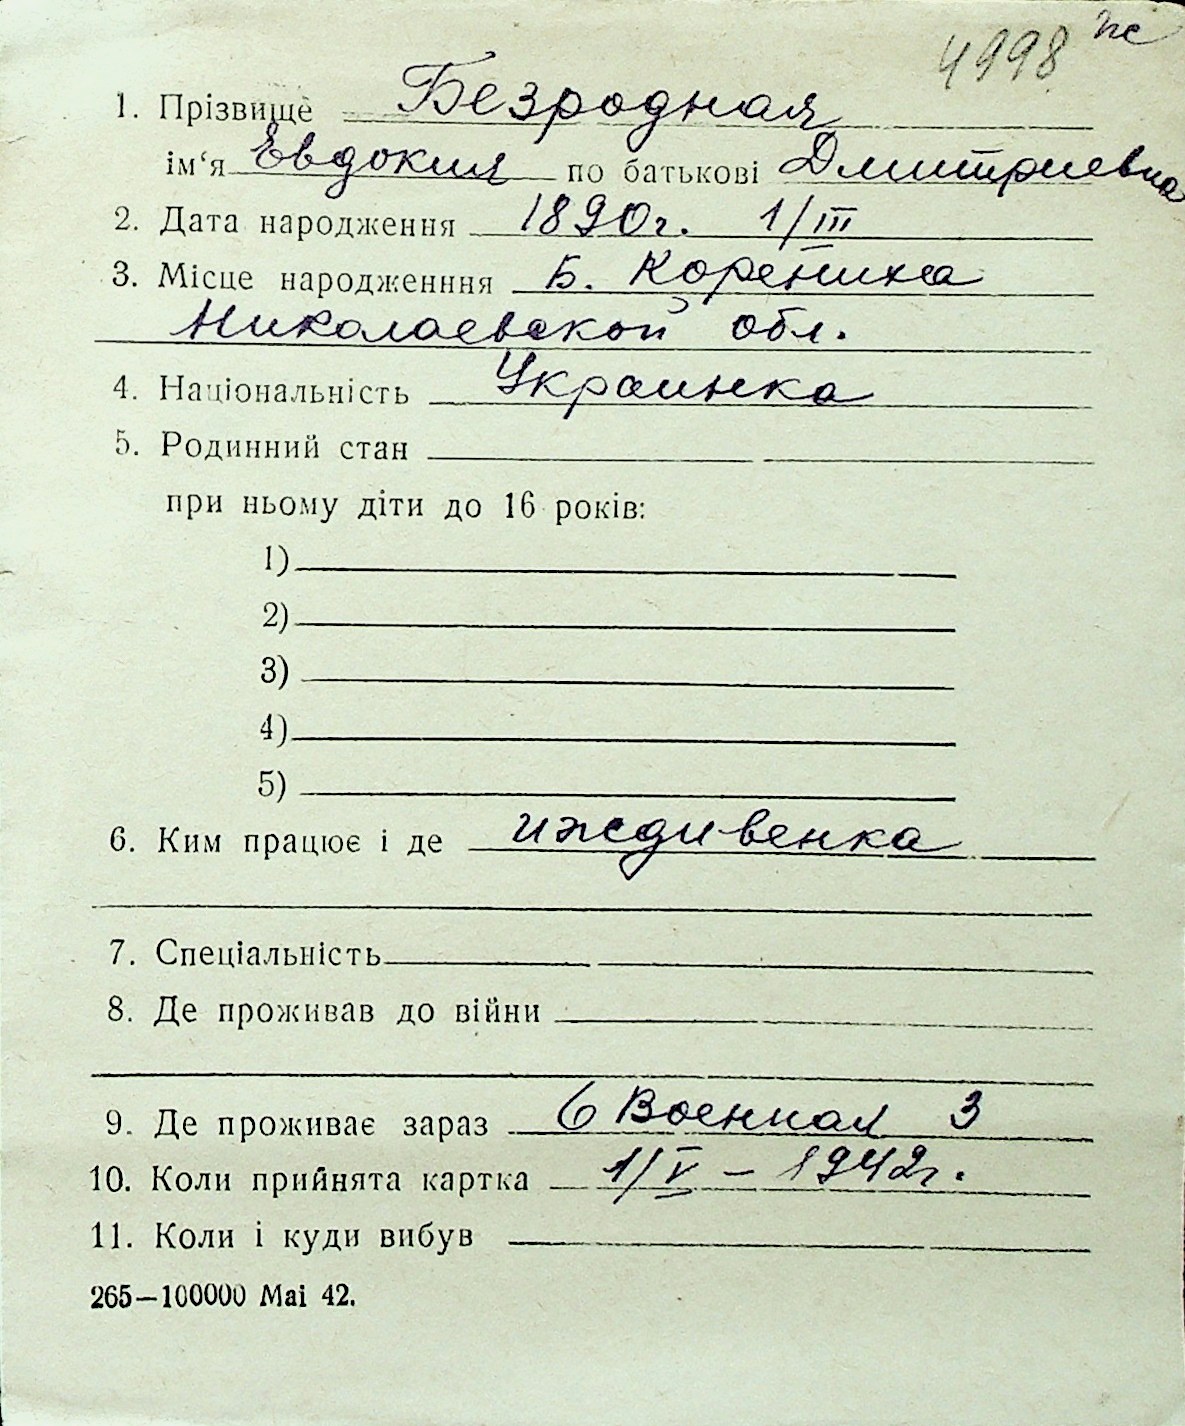 4998 же
1. Прізвище Безродная
ім‘я Евдокия по батькові Дмитриевна
2. Дата народження 1890г. 1/III
3. Місце народженння Б. Корениха
Николаевской обл.
4. Національність Украинка
5. Родинний стан
при ньому діти до 16 років:
1)
2)
3)
4)
5)
6. Ким працює і де иждивенка
7. Спеціальність
8. Де проживав до війни
9. Де проживає зараз 6 Военная 3
10. Коли прийнята картка 1/V – 1942г.
11. Коли і куди вибув
265—100000 Mai 42.